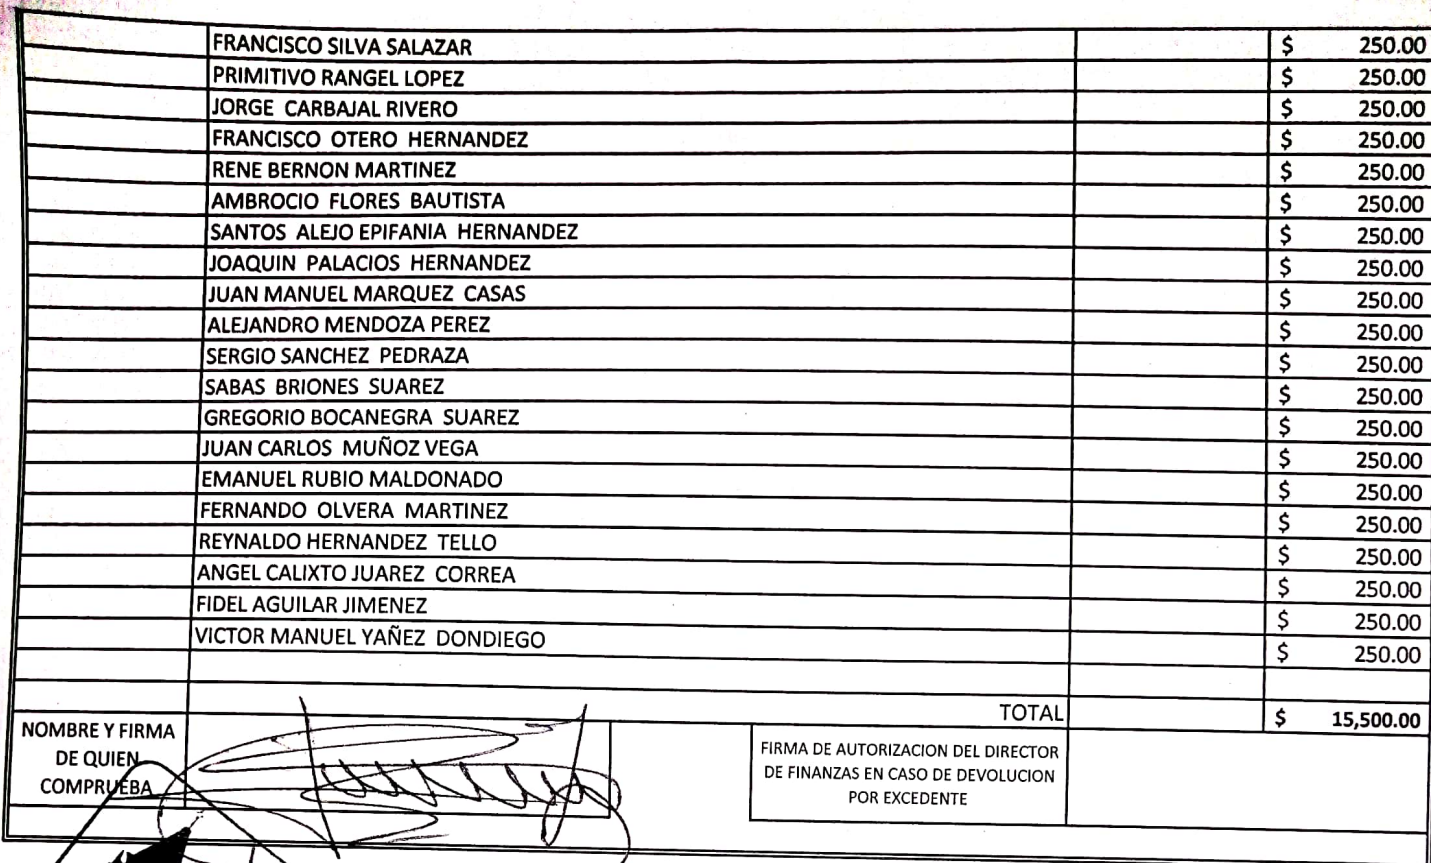 FRANCISCO SILVA SALAZAR $ 250.00
PRIMITIVO RANGEL LOPEZ $ 250.00
JORGE CARBAJAL RIVERO $ 250.00
FRANCISCO OTERO HERNANDEZ $ 250.00
RENE BERNON MARTINEZ $ 250.00
AMBROCIO FLORES BAUTISTA $ 250.00
SANTOS ALEJO EPIFANIA HERNANDEZ $ 250.00
JOAQUIN PALACIOS HERNANDEZ $ 250.00
JUAN MANUEL MARQUEZ CASAS $ 250.00
ALEJANDRO MENDOZA PEREZ $ 250.00
SERGIO SANCHEZ PEDRAZA $ 250.00
SABAS BRIONES SUAREZ $ 250.00
GREGORIO BOCANEGRA SUAREZ $ 250.00
JUAN CARLOS MUÑOZ VEGA $ 250.00
EMANUEL RUBIO MALDONADO $ 250.00
FERNANDO OLVERA MARTINEZ $ 250.00
REYNALDO HERNANDEZ TELLO $ 250.00
ANGEL CALIXTO JUAREZ CORREA $ 250.00
FIDEL AGUILAR JIMENEZ $ 250.00
VICTOR MANUEL YAÑEZ DONDIEGO $ 250.00
TOTAL $ 15,500.00
NOMBRE Y FIRMA
DE QUIEN
COMPRUEBA
FIRMA DE AUTORIZACION DEL DIRECTOR
DE FINANZAS EN CASO DE DEVOLUCION
POR EXCEDENTE